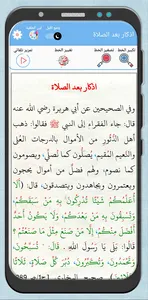 أذكار بعد الصلاة
تغيير الخط
تصغير الخط
تكبير الخط
تمرير تلقائي
أذكار بعد الصلاة
وفي الصحيحين عن أبي هريرة رضي الله عنه
قال: جاء الفقراء إلى النبي ﷺ فقالوا: ذهب
أهل الدُّثور من الأموال بالدرجات العُلى
والنعيم المقيم، يُصلُّون كما نُصلِّي، ويصومون
كما نصوم، ولهم فضل من أموال يحجون بها
ويعتمرون ويجاهدون ويتصدقون. قال: (أَلَا
أُعَلِّمُكُمْ شَيْئًا تُدْرِكُونَ بِهِ مَنْ سَبَقَكُمْ،
وَتَسْبِقُونَ بِهِ مَنْ بَعْدَكُمْ، وَلَا يَكُونُ أَحَدٌ
أَفْضَلَ مِنْكُمْ إِلَّا مَنْ صَنَعَ مِثْلَ مَا صَنَعْتُمْ؟
قالوا: بَلَى يا رسول الله. قال: تُسَبِّحُونَ،